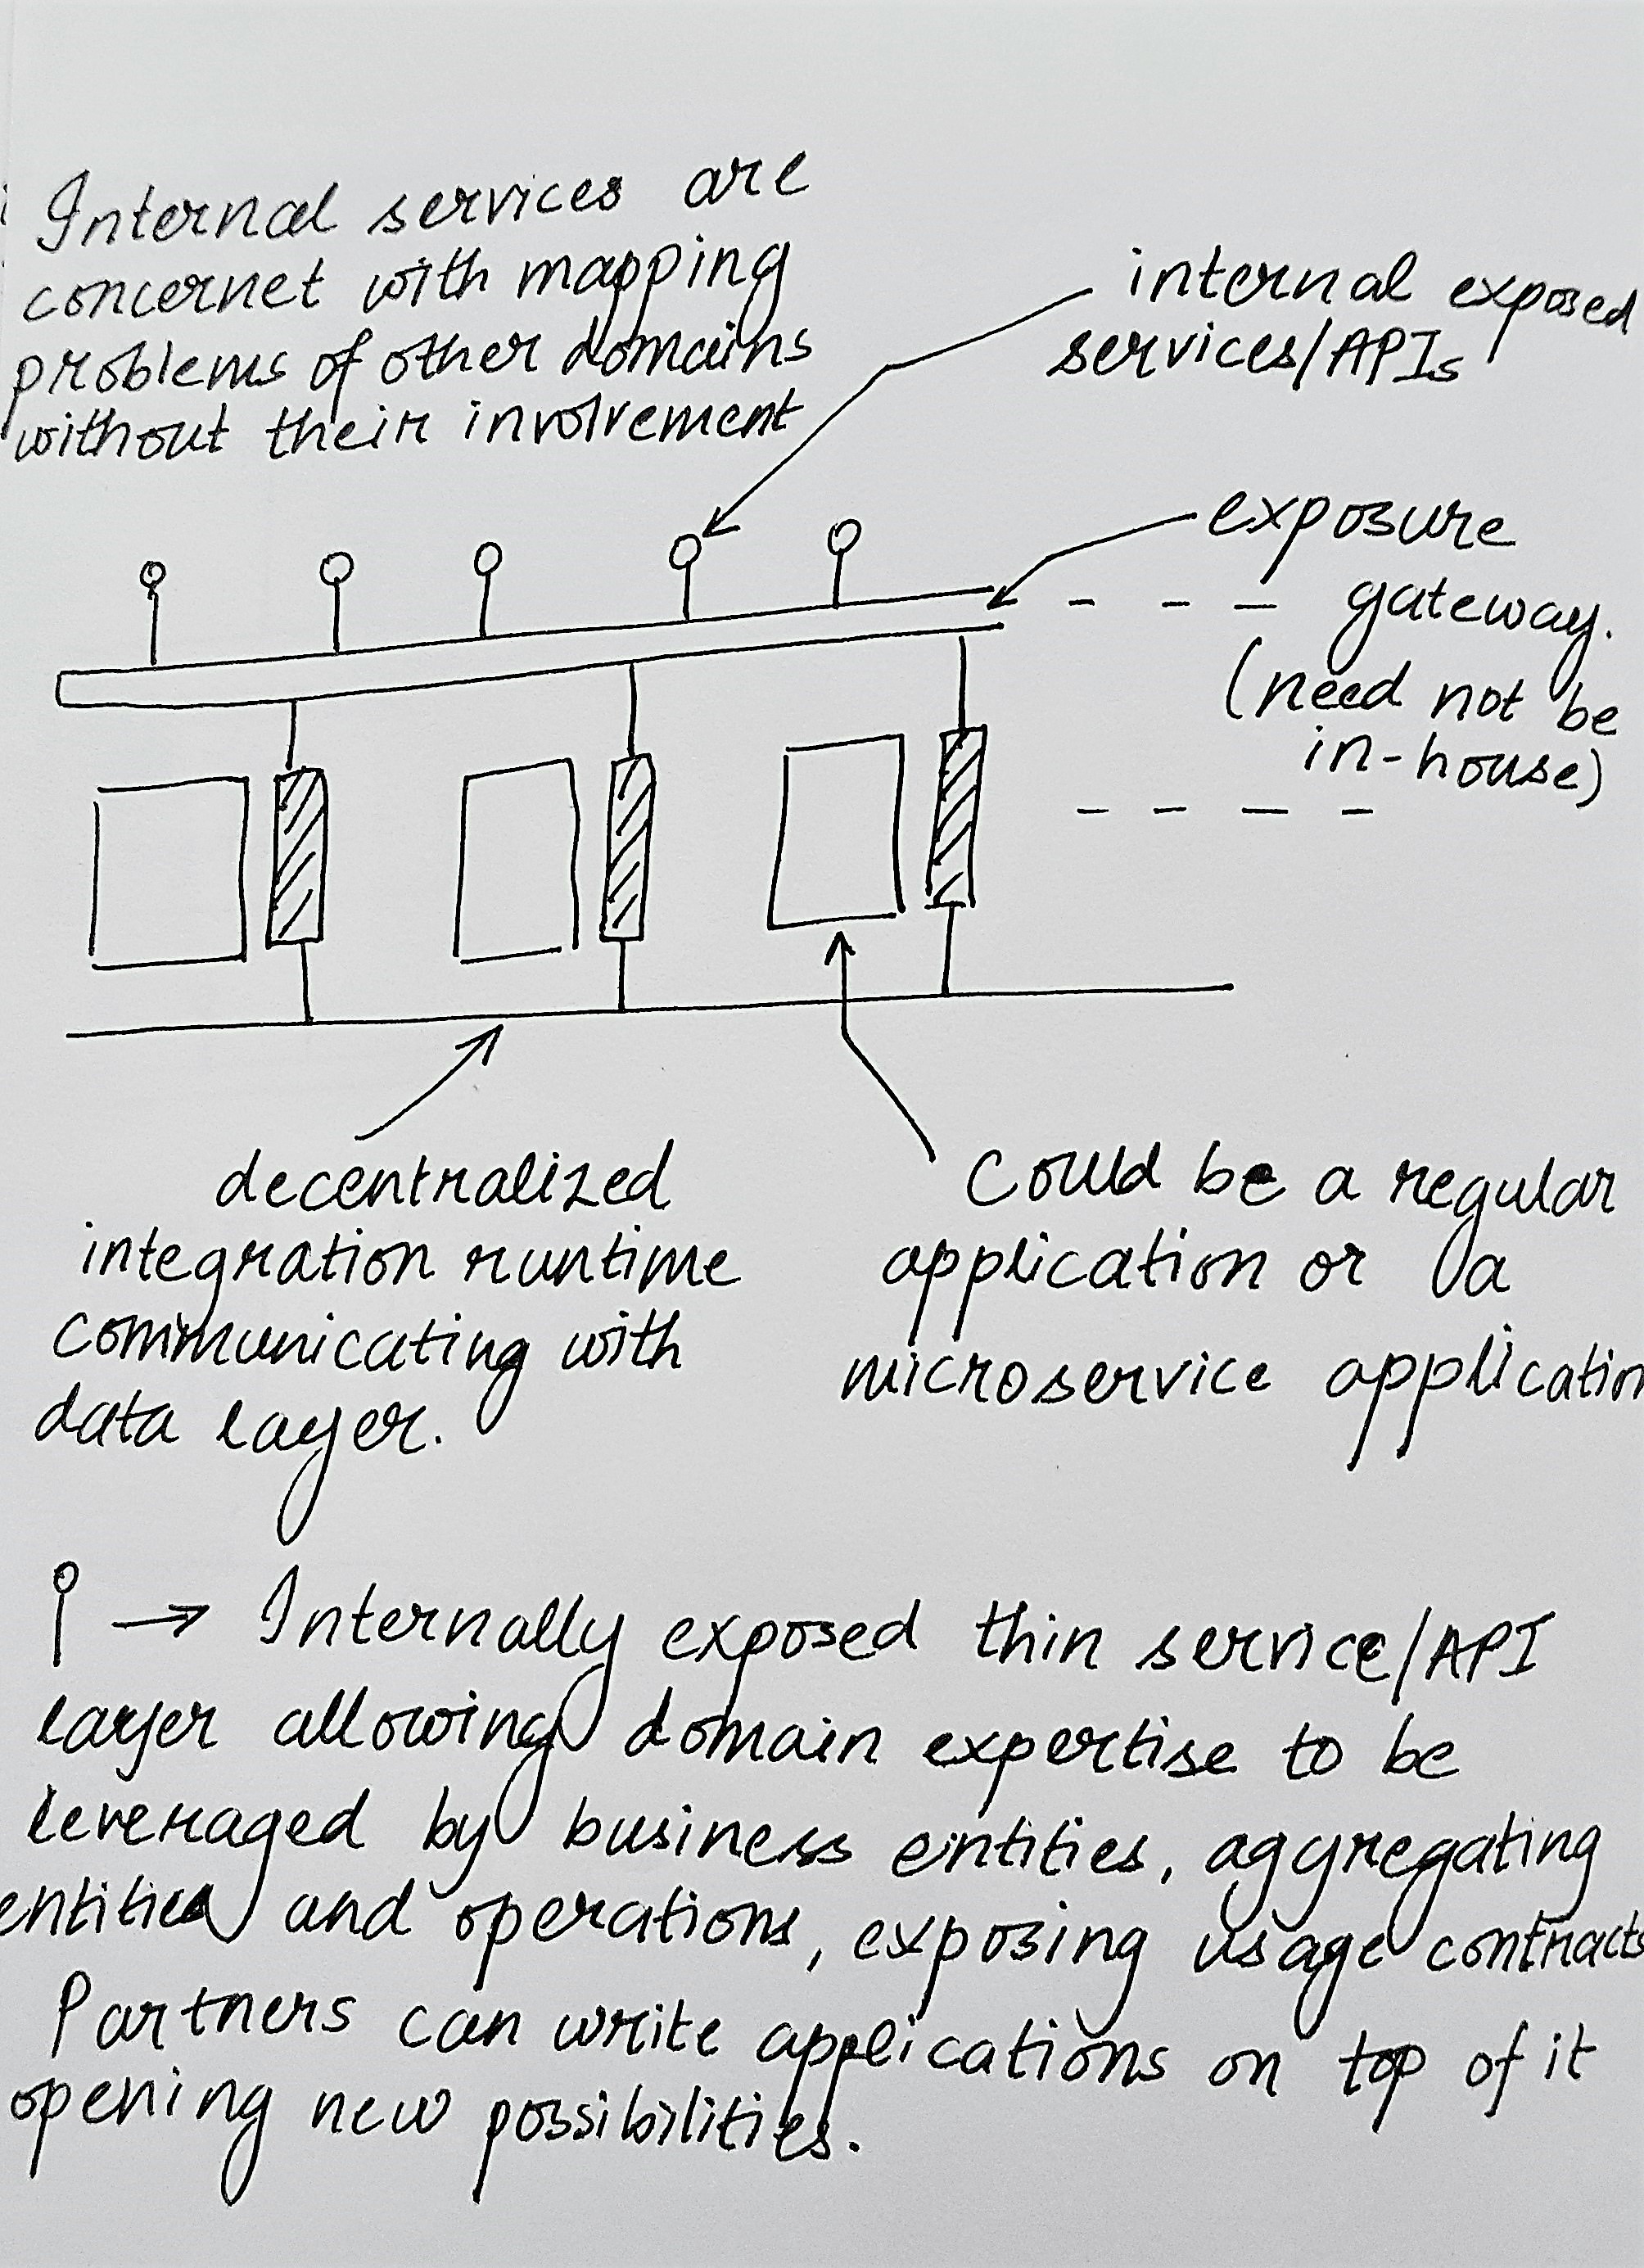 Internal services are
concernet with mapping
problems of other domains
without their involvement
internal exposed
services/APIs
exposure
gateway.
(need not be
in-house)
decentralized
integration runtime
communicating with
data layer.
Could be a regular
application or a
microservice application
→ Internally exposed thin service/API
layer allowing domain expertise to be
leveraged by business entities, aggregating
entities and operations, exposing usage contracts
Partners can write applications on top of it
opening new possibilities.